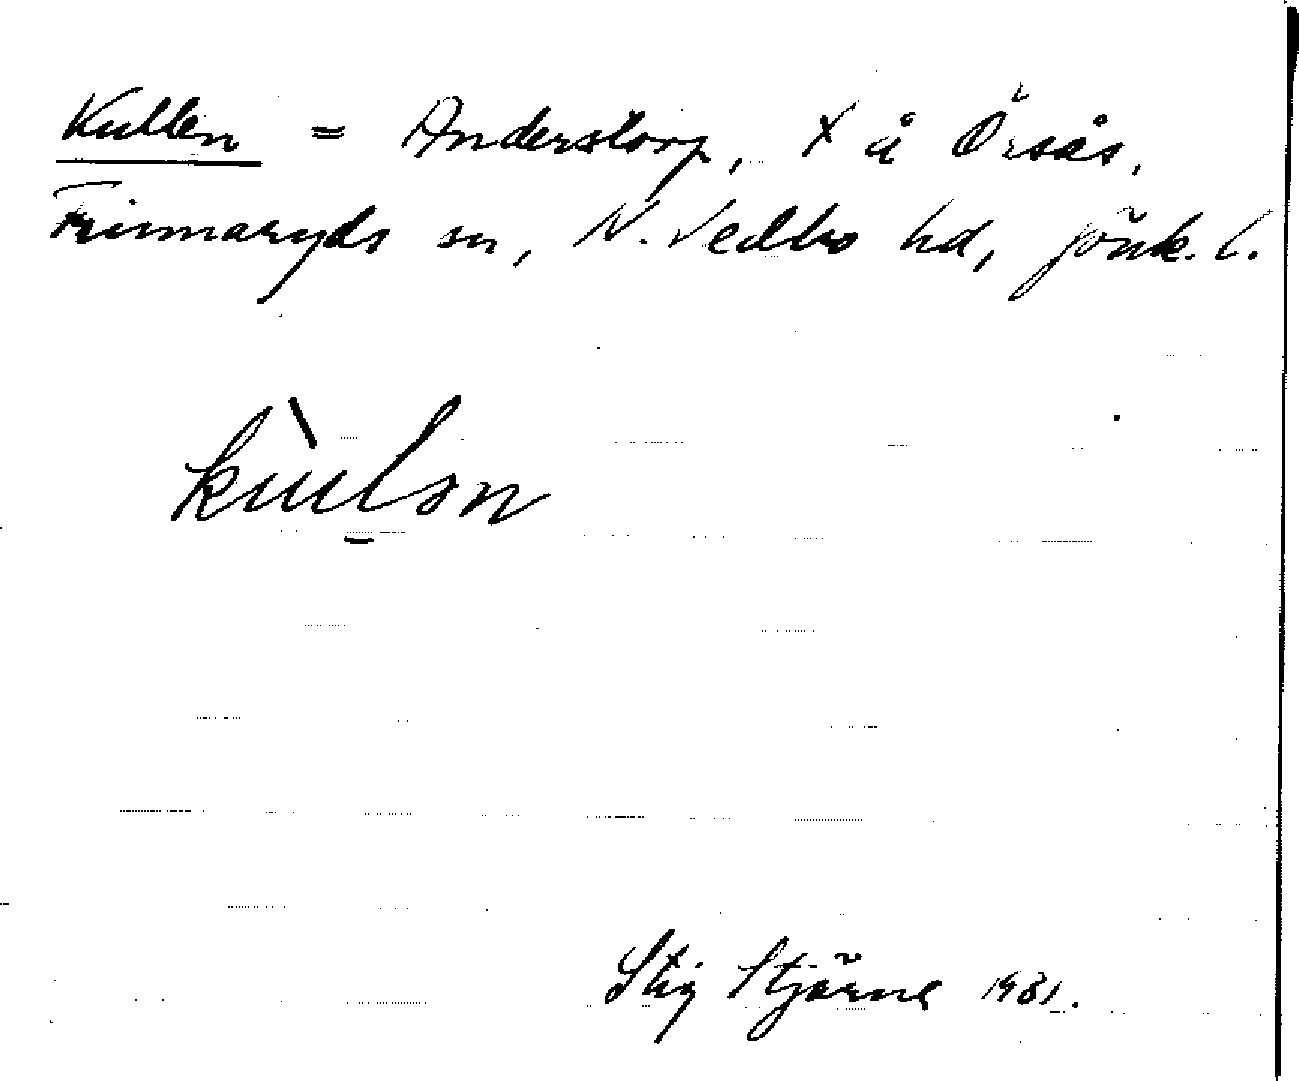 Kullen = Anderstorp, X å Örsås,
Frinnaryds sn, N. Vedbo hd, Jönk. l.
kùlən
Stig Stjärne 1931.